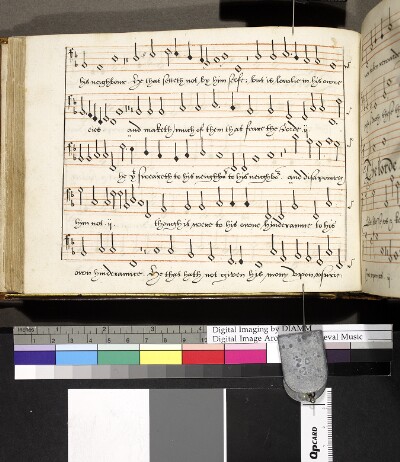 his neighbour. He that setteth not by him selfe: but is lowlie in his owne
eies and maketh much of them that feare the Lorde .ij.
he yt sweareth to his neighbo to his neighbo and disapointeth
him not .ij. though it were to his owne hinderaunce to his
own hinderaunce. He that hath not given his mony upon usurie
Digital Imaging by DIAMM
Digital Image Arc eval Music
QPCARD